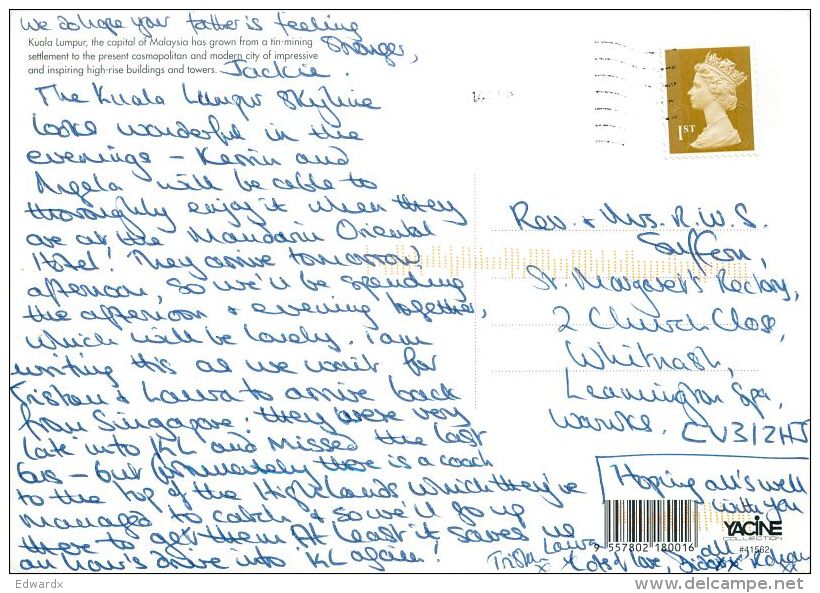 We do hope your father is feeling
stronger,
Jackie.
Kuala Lumpur, the capital of Malaysia has grown from a tin-mining
settlement to the present cosmopolitan and modern city of impressive
and inspiring high-rise buildings and towers.
The Kuala Lumpur Skyline
looks wonderful in the
evenings – and
Angela will be able to
thoroughly enjoy it when they
are at the Mandarin Oriental
Hotel! They arrive tomorrow
afternoon, so we'll be spending
the afternoon + evening together,
which will be lovely. I am
writing this as we wait for
Tristan + Laura to arrive back
from Singapore: they were very
late into KL and missed the last
bus – but fortunately there is a coach
to the top of the Highlands which they've
managed to catch + so we'll go up
there to get them. At least it saves us
an hour's drive into KL again!
1ST
Rev. + Mrs. R.W.S.
St. Margaret's Rectory,
2 Church Close,
Whitnash,
Leamington Spa,
Warwks.
CV31 2HJ
Hoping all's well
with you
all
Laura
Lots of love,
xx
9 557802 180016
YACINE
COLLECTION
#41562
Edwardx
delcampe.net